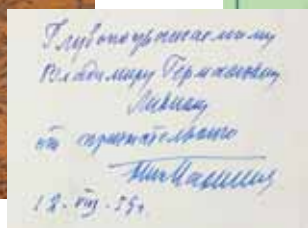 Глубокоуважаемому
Владимиру Германовичу
Лидину
от признательного
12-VIII-59г.